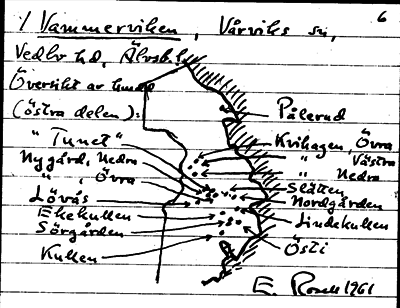 6
/ Vammerviken, Vårviks sn,
Vedbo hd, Älvsb. l.
Översikt av
(östra delen):
Pålerud
"Tunet"
Kvihagen, Övra
Nygård, Nedra
" Västra
" , Övra
" Nedra
Slätten
Lövås
Nordgården
Ekekullen
Lindekullen
Sörgården
Östi
Kullen
E. Rosell 1961